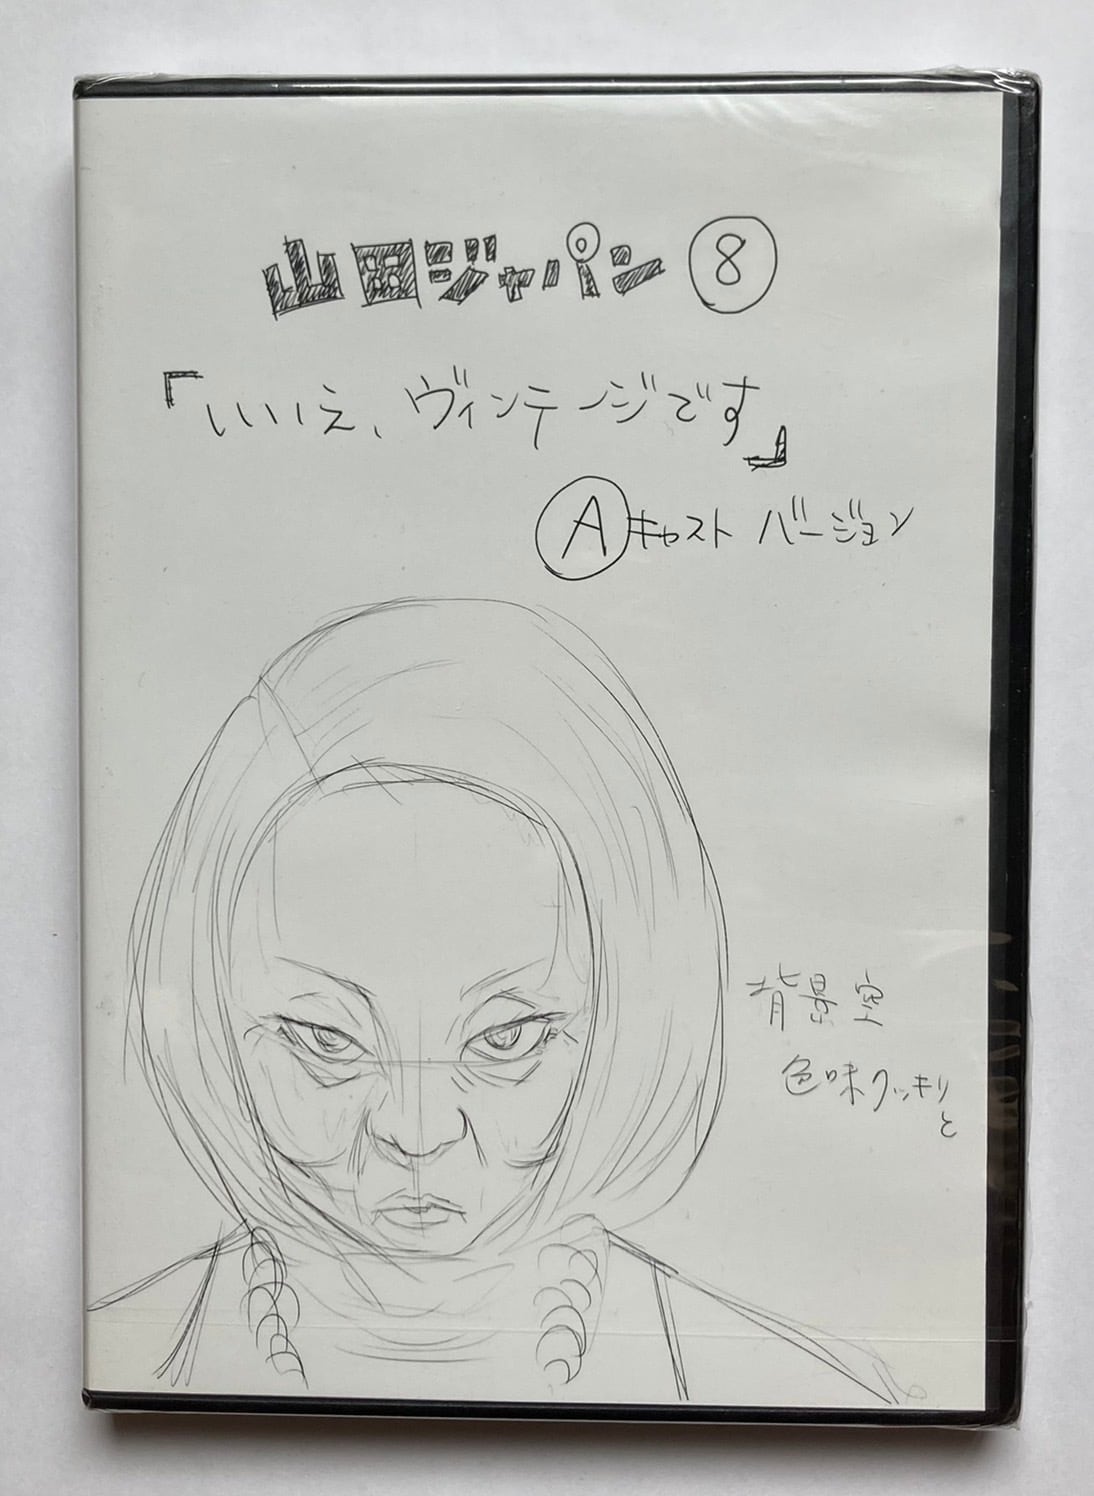 山田ジャパン⑧
「いいえ、ヴィンテージです」
Ⓐキャスト バージョン
背景空
色味クッキリ
と